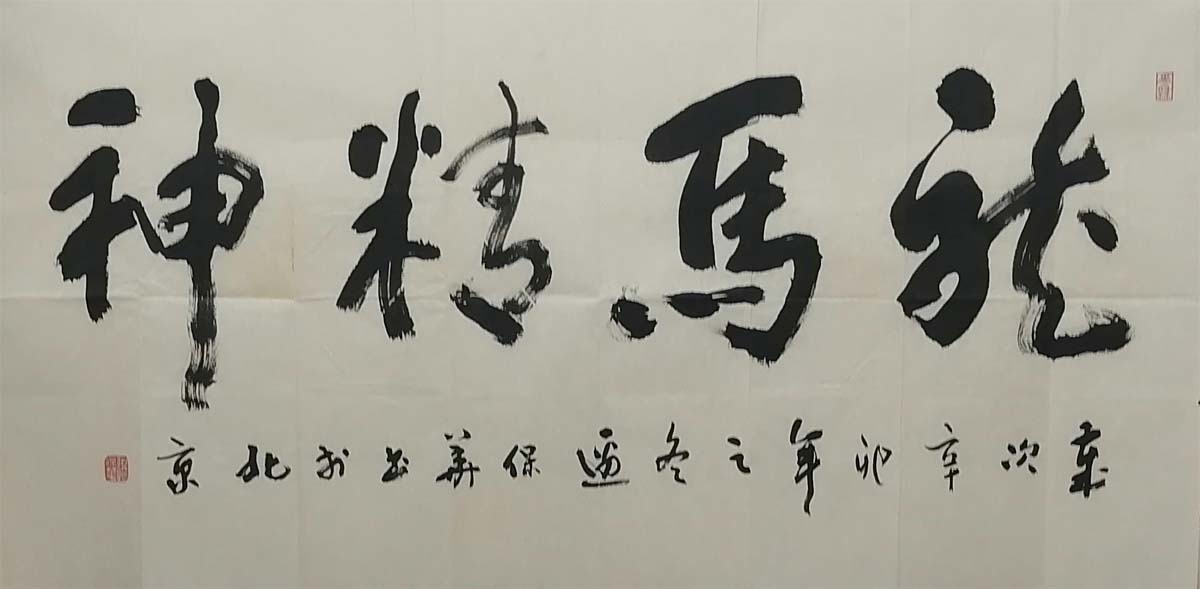 龍馬精神
歲次辛卯年之冬邊保華書於北京